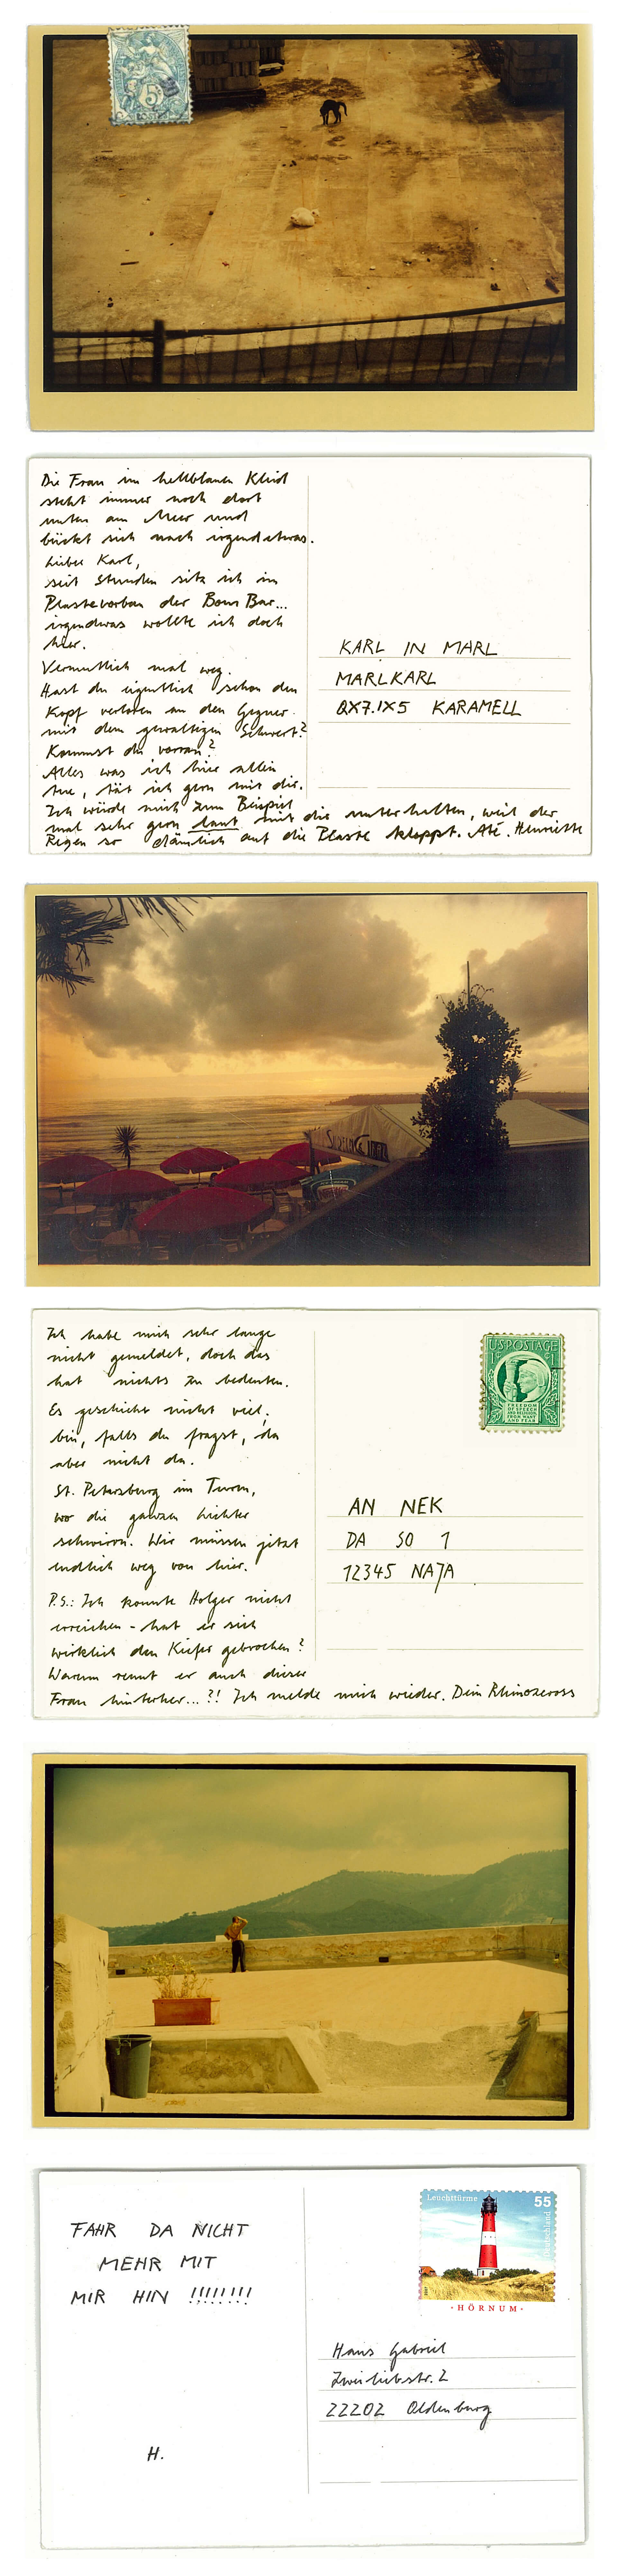 5
Die Frau im hellblauen Kleid
steht immer noch dort
unten am Meer und
bückt sich nach irgendetwas.
Lieber Karl,
seit Stunden sitz ich im
Plastevorbau der Bour Bar...
irgendwas wollte ich doch
hier.
Vermutlich mal weg.
Hast du eigentlich schon den
Kopf verloren an den Gegner
mit dem gewaltigen Schwert?
Kommst du voran?
Alles was ich hier allein
tue, tät ich gern mit dir.
Ich würde mich zum Beispiel
mal sehr gern laut mit dir unterhalten, weil der
Regen so dämlich auf die Plaste kloppt. Até. Henriette
KARL IN MARL
MARLKARL
QX7.1X5 KARAMELL
Ich habe mich sehr lange
nicht gemeldet, doch das
hat nichts zu bedeuten.
Es geschieht nicht viel,
bin, falls du fragst, da
aber nicht da.
St. Petersburg im Turm,
wo die ganzen Lichter
schwirrn. Wir müssen jetzt
endlich weg von hier.
P.S.: Ich konnte Holger nicht
erreichen - hat er sich
wirklich den Kiefer gebrochen?
Warum rennt er auch dieser
Frau hinterher...?! Ich melde mich wieder. Dein Rhinozeross
US POSTAGE
1¢ 1¢
FREEDOM
OF SPEECH
AND RELIGION
FROM WANT
AND FEAR
AN NEK
DA SO 1
12345 NAJA
FAHR DA NICHT
MEHR MIT
MIR HIN !!!!!!!!
H.
Leuchttürme 55
Deutschland
·HÖRNUM·
Hans Gabriel
Zweiliebstr. 2
22202 Oldenburg